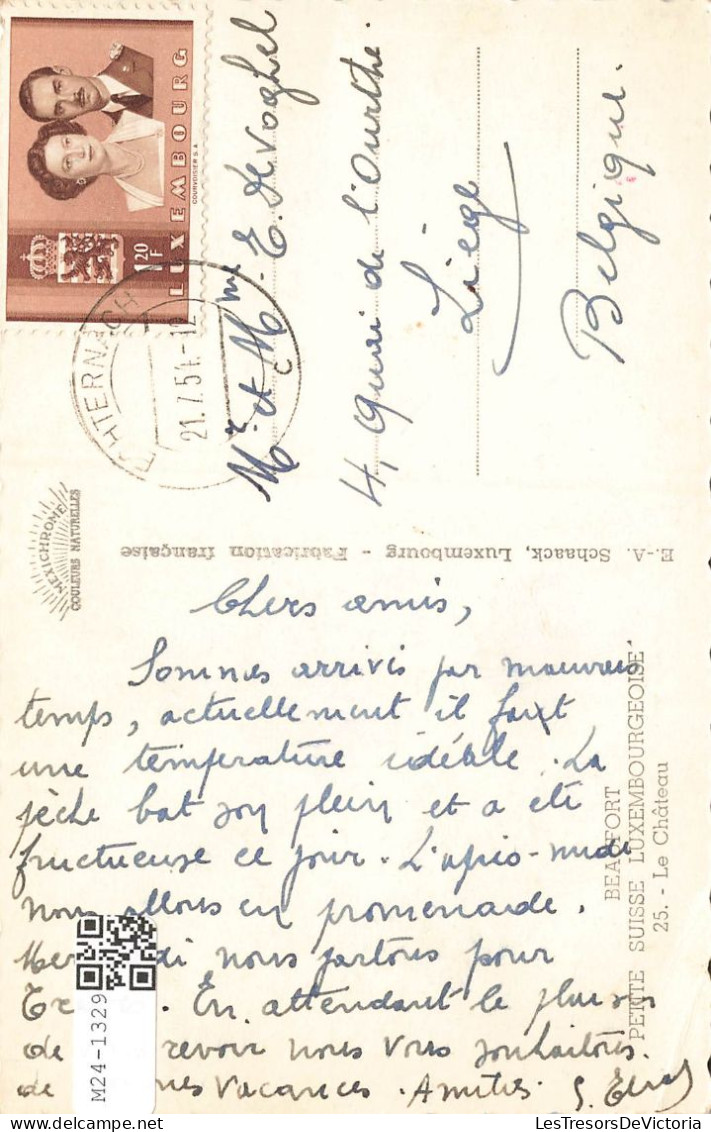 LUXEMBOURG
1.20
F
COURVOISIER S.A.
ECHTERNACH
21.7.54.-12
C
Mr et Mme E. Devoghel
4, Quai de l'Ourthe.
Liège
Belgique.
MEXICHROME
COULEURS NATURELLES
E.-A. Schaack, Luxembourg - Fabrication française
BEAUFORT
PETITE SUISSE LUXEMBOURGEOISE
25. - Le Château
Chers amis,
Sommes arrivés par mauvais
temps, actuellement il fait
une température idéale. La
pèche bat son plein et a été
fructueuse ce jour. L'après-midi
nous allons en promenade.
Mer di nous partons pour
En attendant le plaisir
de revoir nous vous souhaitons
de nes vacances. Amitiés.
M24-1329
LesTresorsDeVictoria @ LesTresorsDeVictoria